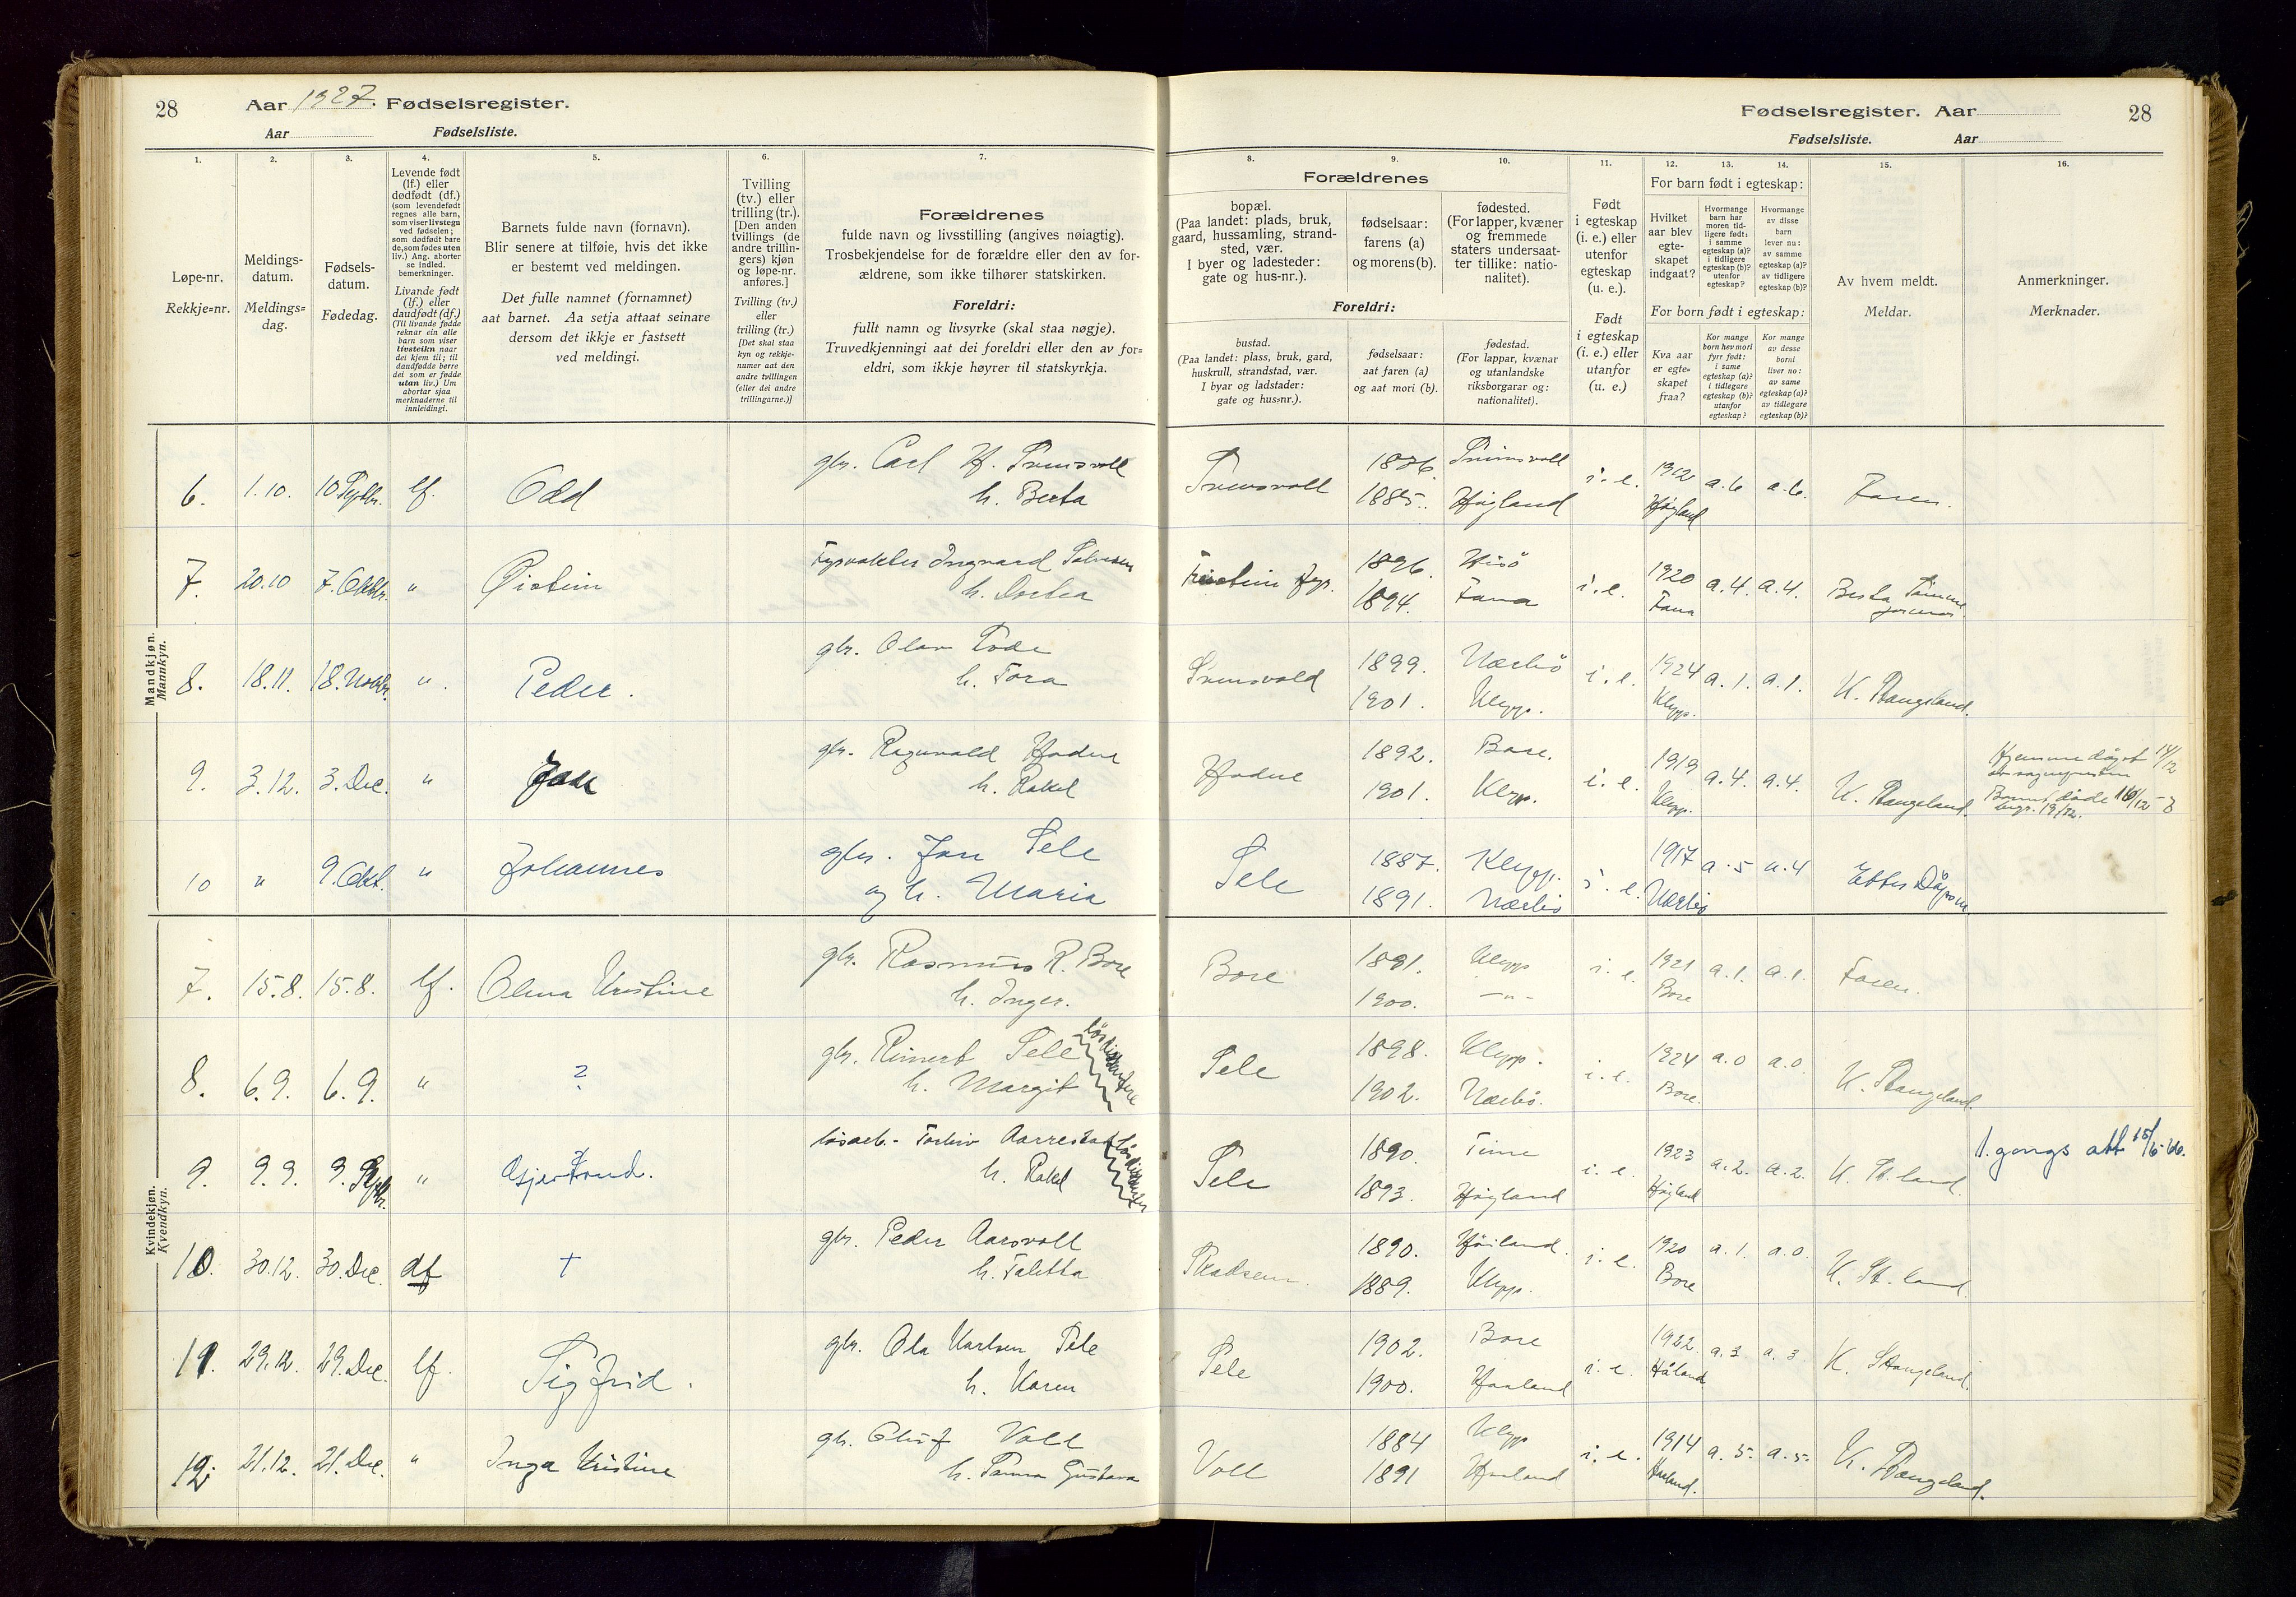 28 Aar 1927. Fødselsregister.
Aar Fødselsliste.
Fødselsregister. Aar 28
Fødselsliste. Aar
1. 2. 3. 4. 5. 6. 7. 8. 9. 10. 11. 12. 13. 14. 15. 16.
Løpe-nr.
Rekkje=nr.
Meldings-
datum.
Meldings=
dag.
Fødsels-
datum.
Fødedag.
Levende født
(lf.) eller
dødfødt (df.)
(som levendefødt
regnes alle barn,
som viser livstegn
ved fødselen;
som dødfødt bare
de, som fødes uten
liv.) Ang. aborter
se indled.
bemerkninger.
Livande født
(lf.) eller
daudfødt (df.)
(Til livande fødde
reknar ein alle
barn som viser
livsteikn naar
dei kjem til; til
daudfødde berre
dei som er fødde
utan liv.) Um
abortar sjaa
merknaderne til
innleidingi.
Barnets fulde navn (fornavn).
Blir senere at tilføie, hvis det ikke
er bestemt ved meldingen.
Det fulle namnet (fornamnet)
aat barnet. Aa setja attaat seinare
dersom det ikkje er fastsett
ved meldingi.
Tvilling
(tv.) eller
trilling (tr.).
[Den anden
tvillings (de
andre trillin-
gers) kjøn
og løpe-nr.
anføres.]
Tvilling (tv.)
eller
trilling (tr.)
[Det skal staa
kyn og rekkje-
numer aat den
andre tvillingen
(eller dei andre
trillingarne.)]
Forældrenes
fulde navn og livsstilling (angives nøiagtig).
Trosbekjendelse for de forældre eller den av for-
ældrene, som ikke tilhører statskirken.
Foreldri:
fullt namn og livsyrke (skal staa nøgje).
Truvedkjenningi aat dei foreldri eller den av for=
eldri, som ikkje høyrer til statskyrkja.
Forældrenes
bopæl.
(Paa landet: plads, bruk,
gaard, hussamling, strand-
sted, vær.
I byer og ladesteder:
gate og hus-nr.).
fødselsaar:
farens (a)
og morens (b).
fødested.
(For lapper, kvæner
og fremmede
staters undersaat-
ter tillike: natio-
nalitet).
Foreldri:
bustad.
(Paa landet: plass, bruk, gard,
huskrull, strandstad, vær.
I byar og ladstader:
gate og hus=nr.).
fødselsaar:
aat faren (a)
og aat mori (b).
fødestad.
(For lappar, kvænar
og utanlandske
riksborgarar og:
nationalitet).
Født
i egteskap
(i. e.) eller
utenfor
egteskap
(u. e.).
Født
i egteskap
(i. e.) eller
utanfor
(u. e.)
For barn født i egteskap:
Hvilket
aar blev
egte-
skapet
indgaat?
Hvormange
barn har
moren tid-
ligere født:
i samme
egteskap (a)?
i tidligere
egteskap (b)?
utenfor
egteskap?
Hvormange
av disse
barn
lever nu:
av samme
egteskap (a)?
av tidligere
egteskap (b)?
For born født i egteskap:
Kva aar
er egte=
skapet
fraa?
Kor mange
born hev mori
fyrr født:
i same
egteskap (a)?
i tidlegare
egteskap (b)?
utanfor
egteskap?
Kor mange
av desse
borni
liver no:
av same
egteskap (a)?
av tidlegare
egteskap (b)?
Av hvem meldt.
Meldar.
Anmerkninger.
Merknader.
Mandkjøn.
Mannkyn.
6. 1.10. 10 Septbr. lf. Odd gbr. Carl H. h. Berta 1885. Høgland i. e. 1912 Høgland a. 6 a. 6. Faren.
7. 20.10 7. Oktbr. " Øistein Fyrvakter Ingvard h. Dortea Feistein fyr. 1896. 1894. Hisö Fana i. e. 1920 Fana a. 4. a. 4. Berta
8. 18.11. 18. Novbr. " Peder. gbr. Olav Tode h. Tora 1899. 1901. Nærbö Klepp. i. e. 1924 Klepp. a. 1. a. 1. K. Stangeland.
9. 3.12. 3. Dec. " gbr. Ragnvald Hodne h. Rakel Hodne 1892. 1901. Bore. Klepp. i. e. 1919 Klepp. a. 4. a. 4. K. Stangeland. Hjemmedöpt 14/12
10 " 9. Okt. " Johannes gbr. Jan Sele og h. Maria Sele 1887. 1891. Klepp. Nærbö i. e. 1917 Nærbö a. 5 a. 4
Kvindekjøn.
Kvendkyn.
7. 15.8. 15.8. lf. Olena Kristine gbr. Rasmus R. Bore h. Inger. Bore 1891. 1900. Klepp -"- i. e. 1921 Bore a. 1. a. 1. Faren.
8. 6.9. 6.9. " ? gbr. Reinert Sele h. Margit Sele 1898. 1902. Klepp. Nærbö. i. e. 1924 Bore. a. 0 a. 0. K. Stangeland.
9. 9.9. 9. Septbr. " Gjertrud. Aarrestad h. Rakel Sele 1890. 1893. Time Høgland i. e. 1923 Høgland a. 2. a. 2. K. St. land. 1. gongs att 15/6-66.
10. 30.12. 30. Dec. df † gbr. Peder Aarsvoll h. Taletta 1890. 1889. Höiland. Klepp. i. e. 1920 Bore a. 1. a. 0. K. St. land.
11. 29.12. 29. Dec. lf. Sigfrid. gbr. Ola Karlsen Sele h. Karen Sele 1902. 1900. Bore Haaland i. e. 1922. Håland a. 3 a. 3 K. Stangeland.
12. 21.12. 21. Dec. " Inga Kristine gbr. Voll h. Gustava Voll 1884 1891 Klepp Haaland i. e. 1914 a. 5. a. 5. K. Stangeland.